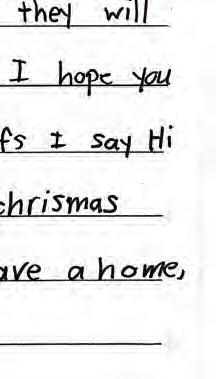 they will
I hope you
fs I say Hi
chrismas
ave a home,